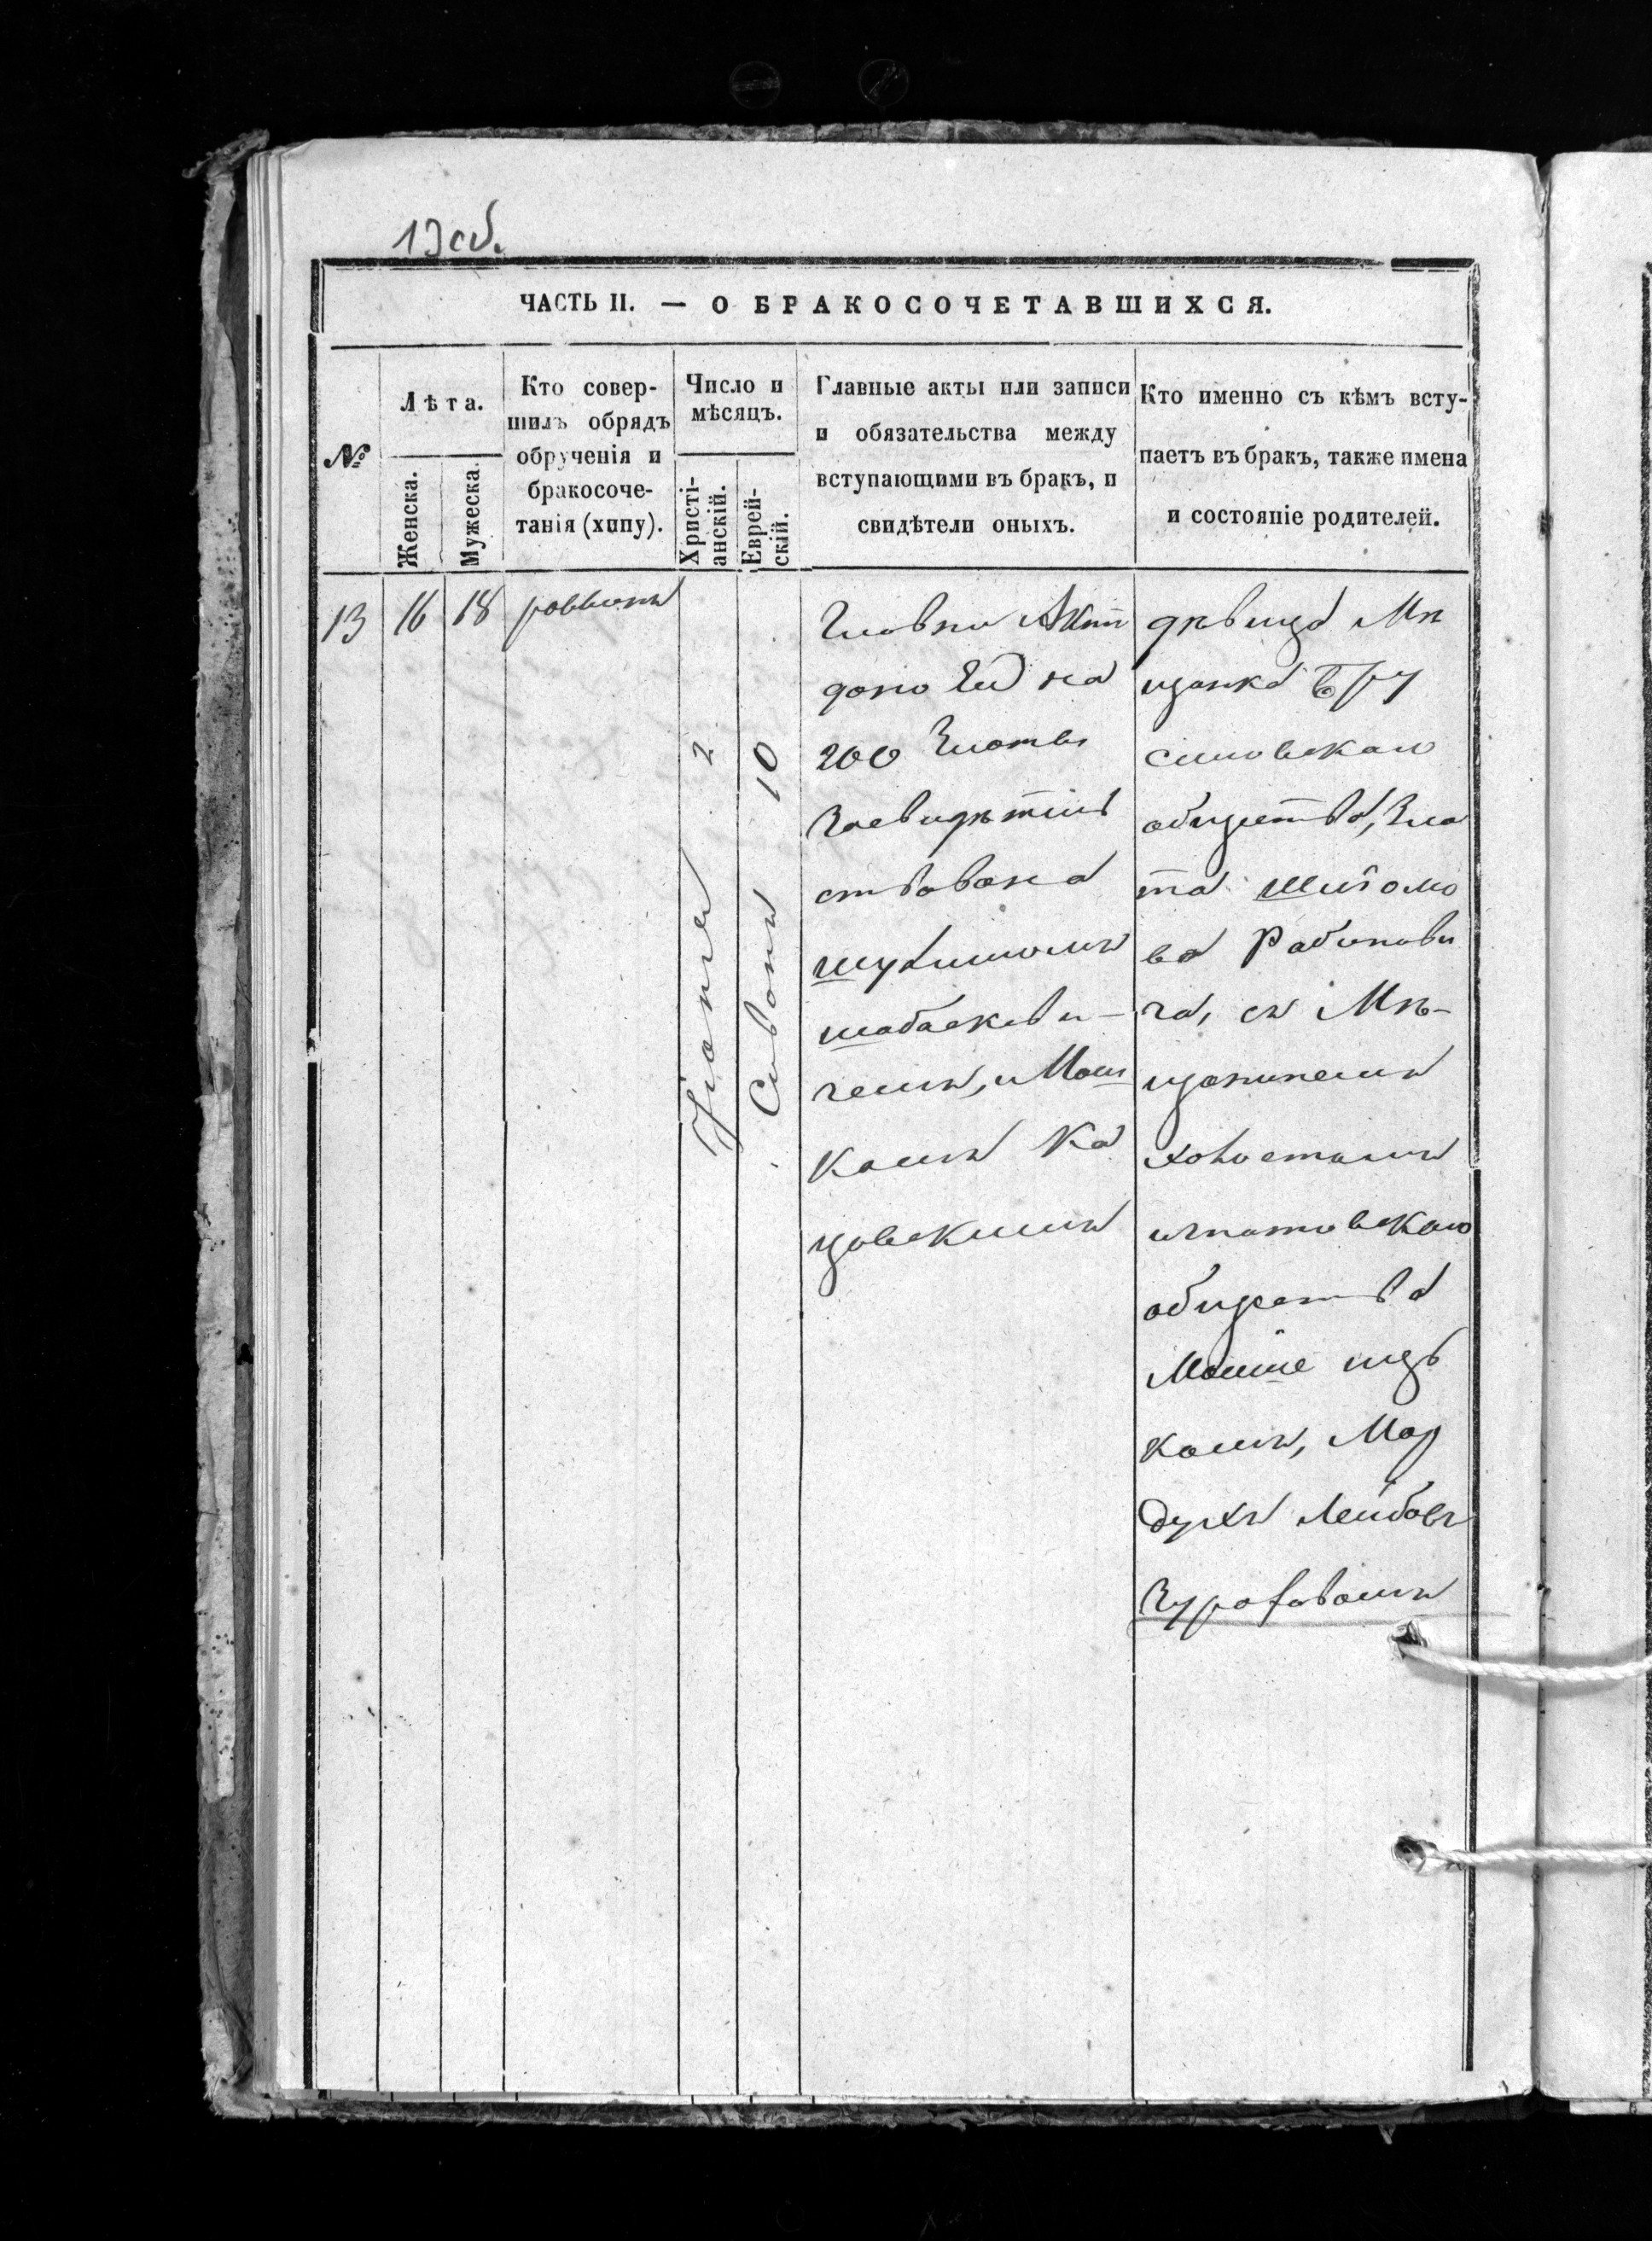 13об.
ЧАСТЬ II. — О БРАКОСОЧЕТАВШИХСЯ.
№
Лѣта.
Женска.
Мужеска.
Кто совер-
шилъ обрядъ
обрученія и
бракосоче-
танія (хипу).
Число и
мѣсяцъ.
Христі-
анскій.
Еврей-
скій.
Главные акты или записи
и обязательства между
вступающими въ бракъ, и
свидѣтели оныхъ.
Кто именно съ кѣмъ всту-
паетъ въ бракъ, также имена
и состояніе родителей.
13
16
18
раввинъ
Іюня 2
Сивонъ 10
Главни Актъ
дано Ей на
200 Злоты
Засвидѣтель
ствована
шабаскеви-
чемъ, и Мош
комъ Ка
цовскимъ
дѣвица Мѣ
щанка Бру
силовскаго
общества, Зла
та Шлiомо
ва Рабинови
ча, съ Мѣ-
щаниномъ
холостымъ
игнатовскаго
общества
Мошше ицъ
комъ, Мор
духъ Лейбовъ